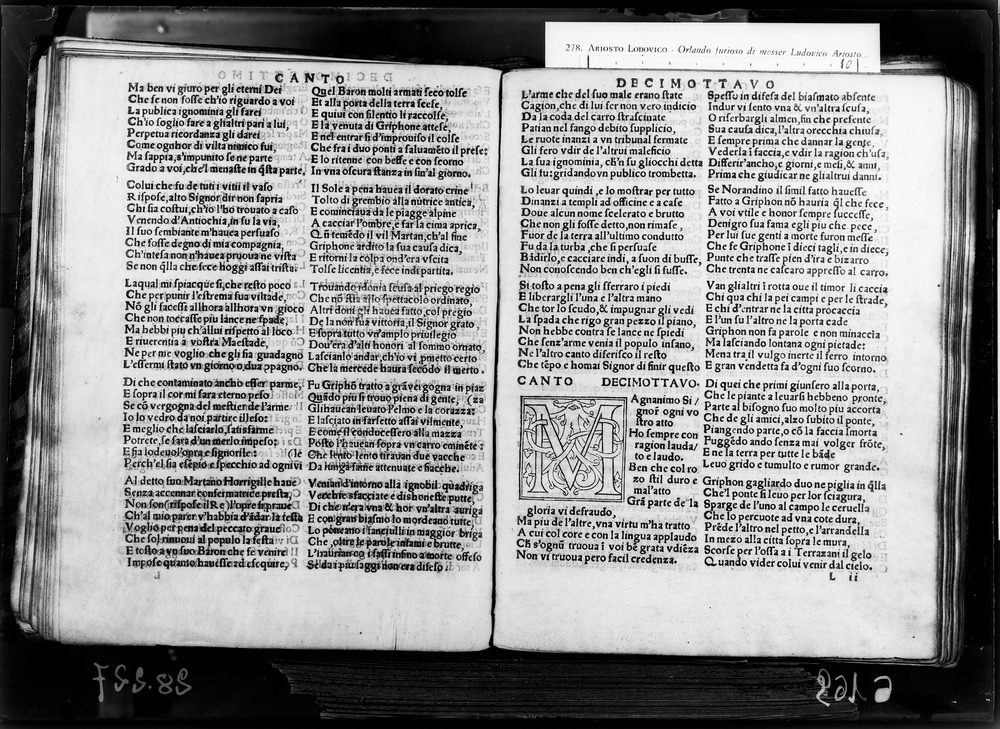 278. ARIOSTO LODOVICO - Orlando furioso di messer Ludovico Ariosto
10
CANTO
Ma ben vi giuro per gli eterni Dei
Che se non fosse ch'io riguardo a voi
La publica ignominia gli farei
Ch'io soglio fare a gl'altri pari a lui,
Perpetua ricordanza gli darei
Come ognhor di vilta nimico fui,
Ma sappia, s'impunito se ne parte
Grado a voi, che'l menaste in q̃sta parte.
Colui che fu de tuti i vitii il vaso
Rispose, alto Signor dir non sapria
Chi sia costui, ch'io l'ho trouato a caso
Venendo d'Antiochia, in su la via,
Il suo sembiante m'hauea persuaso
Che fosse degno di mia compagnia,
Ch'intesa non n'hauea pruoua ne vista
Se non q̃lla che fece hoggi assai trista.
Laqual mi spiacque si, che resto poco
Che per punir l'estrema sua viltade,
Nõ gli facessi allhora allhora vn gioco
Che non toccasse piu lance ne spade,
Ma hebbi piu ch'allui rispetto al loco
E riuerentia a vostra Maestade,
Ne per me voglio che gli sia guadagno
L'essermi stato vn giorno o dua ppagno.
Di che contaminato ancho esser parme,
E sopra il cor mi sara eterno peso
Se cõ vergogna del mestier de l'arme
Io lo vedro da noi partire illeso:
E meglio che lasciarlo, satisfarme
Potrete, se sara d'un merlo impeso:
E sia lodeuol'opra e signorile: (le
Perch'el sia esẽpio e specchio ad ogni vi
Al detto suo Martano Horrigille haue
Senza accennar confermatrice presta,
Non son (rispose il Re) l'opre si praue
Ch'al mio parer v'habbia d'ãdar la testa
Voglio per pena del peccato graue
Che sol rinuoui al populo la festa
E tosto a vn suo Baron che fe venire
Impose quanto hauesse ad essequire,
Quel Baron molti armati seco tolse
Et alla porta della terra scese,
E quiui con silentio li raccolse,
E la venuta di Griphone attese,
E nel entrar si d'improuiso il colse
Che fra i duo ponti a saluamẽto il prese:
E lo ritenne con beffe e con scorno
In vna oscura stanza in sin'al giorno.
Il Sole a pena hauea il dorato crine
Tolto di grembio alla nutrice antica,
E cominciaua da le piagge alpine
A cacciar l'ombre, e far la cima aprica,
Qñ temẽdo il vil Martan, ch'al fine
Griphone ardito la sua causa dica,
E ritorni la colpa ond'era vscita
Tolse licentia, e fece indi partita.
Trouando idonia scusa al priego regio
Che nõ stia allo spettacolo ordinato,
Altri doni gli hauea fatto, col pregio
De la non sua vittoria, il Signor grato,
E sopra tutto vn'amplo priuilegio
Dou'era d'alti honori al sommo ornato,
Lascianlo andar, ch'io vi pmetto certo
Che la mercede haura secõdo il merto.
Fu Griphõ tratto a grã vergogna in piaz
Quãdo piu si trouo piena di gente, (za
Gli hauean leuato l'elmo e la corazza:
E lasciato in farsetto assai vilmente,
E come il conducessero alla mazza
Posto l'hauean sopra vn carro eminẽte:
Che lento lento tirauan due vacche
Da lunga fame attenuate e fiacche.
Venian d'intorno alla ignobil quadriga
Vecchie sfacciate e dishoneste putte,
Di che n'era vna & hor vn'altra auriga
E con gran biasmo lo mordeano tutte,
Lo poneano i fanciulli in maggior briga
Che, oltre le parole infami e brutte,
L'haurian co i sassi insino a morte offeso
Se da i piu saggi non era difeso.
L
DECIMOTTAVO
L'arme che del suo male erano state
Cagion, che di lui fer non vero indicio
Da la coda del carro strascinate
Patian nel fango debito supplicio,
Le ruote inanzi a vn tribunal fermate
Gli fero vdir de l'altrui maleficio
La sua ignominia, ch'n su gliocchi detta
Gli fu: gridando vn publico trombetta.
Lo leuar quindi, e lo mostrar per tutto
Dinanzi a templi ad officine e a case
Doue alcun nome scelerato e brutto
Che non gli fosse detto, non rimase,
Fuor de la terra all'ultimo condutto
Fu da la turba, che si persuase
Bãdirlo, e cacciare indi, a suon di busse,
Non conoscendo ben ch'egli si fusse.
Si tosto a pena gli sferraro i piedi
E liberargli l'una e l'altra mano
Che tor lo scudo, & impugnar gli vedi
La spada che rigo gran pezzo il piano,
Non hebbe contra se lance ne spiedi
Che senz'arme venia il populo insano,
Ne l'altro canto diferisco il resto
Che tẽpo e homai Signor di finir questo
CANTO DECIMOTTAVO.
M
Agnanimo Si/
gnor ogni vo
stro atto
Ho sempre con
ragion lauda/
to e laudo.
Ben che col ro
zo stil duro e
mal'atto
Grã parte de la
gloria vi defraudo,
Ma piu de l'altre, vna virtu m'ha tratto
A cui col core e con la lingua applaudo
Ch s'ognũ truoua ĩ voi bẽ grata vdiẽza
Non vi truoua pero facil credenza.
Spesso in difesa del biasmato absente
Indur vi sento vna & vn'altra scusa,
O riserbargli almen, fin che presente
Sua causa dica, l'altra orecchia chiusa,
E sempre prima che dannar la gente,
Vederla ĩ faccia, e vdir la ragion ch'usa,
Differir'ancho, e giorni, e mesi, & anni,
Prima che giudicar ne gl'altrui danni.
Se Norandino il simil fatto hauesse
Fatto a Griphon nõ hauria ql che fece,
A voi vtile e honor sempre successe,
Denigro sua fama egli piu che pece,
Per lui sue genti a morte furon messe
Che fe Griphone ĩ dieci tagli, e in diece,
Punte che trasse pien d'ira e bizarro
Che trenta ne cascaro appresso al carro.
Van glialtri ĩ rotta oue il timor li caccia
Chi qua chi la pei campi e per le strade,
E chi d'entrar ne la citta procaccia
E l'un su l'altro ne la porta cade
Griphon non fa parole e non minaccia
Ma lasciando lontana ogni pietade:
Mena tra il vulgo inerte il ferro intorno
E gran vendetta fa d'ogni suo scorno.
Di quei che primi giunsero alla porta,
Che le piante a leuarsi hebbeno pronte,
Parte al bisogno suo molto piu accorta
Che de gli amici, alzo subito il ponte,
Piangendo parte, o cõ la faccia smorta
Fuggẽdo ando senza mai volger frõte,
E ne la terra per tutte le bãde
Leuo grido e tumulto e rumor grande.
Griphon gagliardo duo ne piglia in q̃lla
Che'l ponte si leuo per lor sciagura,
Sparge de l'uno al campo le ceruella
Che lo percuote ad vna cote dura,
Prẽde l'altro nel petto, e l'arrandella
In mezo alla citta sopra le mura,
Scorse per l'ossa a i Terrazani il gelo
Quando vider colui venir dal cielo.
L ii
28.227
C 163